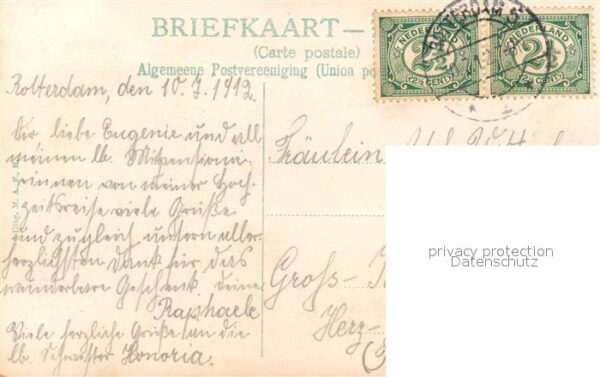 BRIEFKAART
(Carte postale)
Algemeene Postvereeniging (Union po
NEDERLAND
2½
CENT
NEDERLAND
2½
CENT
Rotterdam, den 10.7.1912.
Dir liebe Eugenie und all
meinen lb. Mitpensionä-
rinnen von meiner Hoch-
zeitsreise viele Grüße
und zugleich unsern aller-
herzlichsten Dank für das
wunderbare Geschenk deine
Raphaele
Viele herzliche Grüße an die
lb. Schwester Honoria.
Fräulein
Gross-
Herz-
privacy protection
Datenschutz